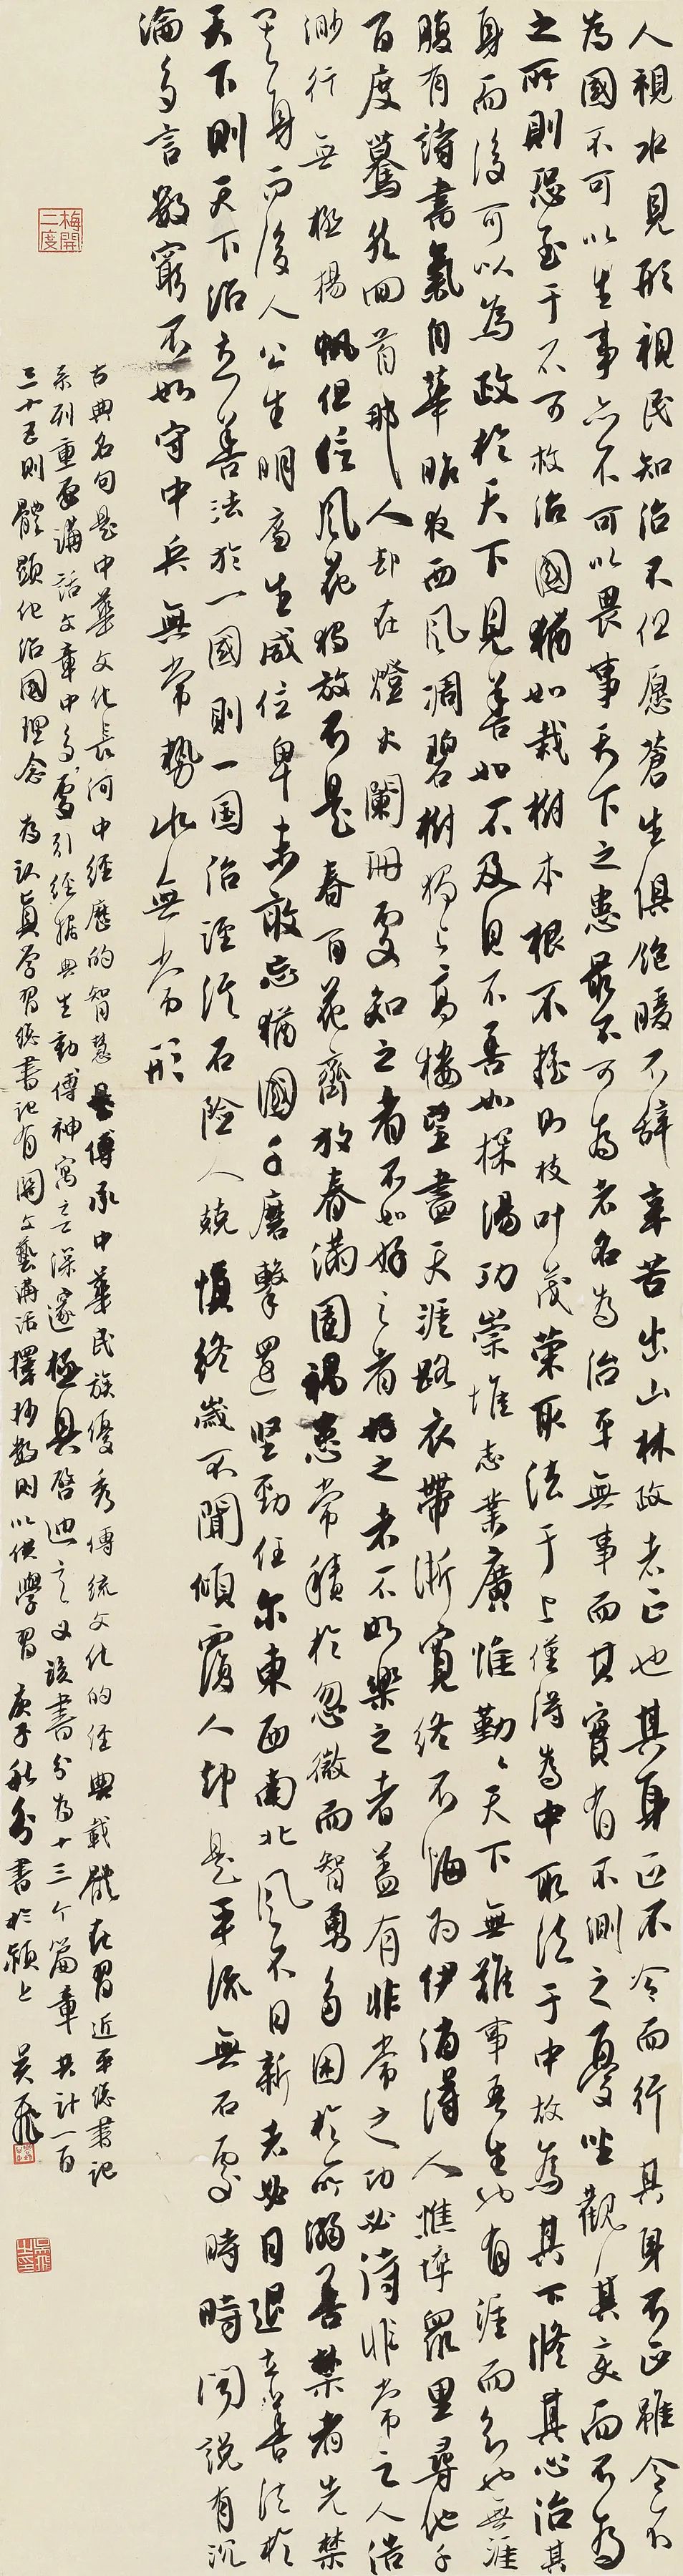 人視水見形視民知治不但愿蒼生俱飽暖不辞辛苦出山林政者正也其身正不令而行其身不正雖令不
為國不可以生事亦不可以畏事天下之患最不可為者名為治平無事而其實有不測之憂坐觀其変而不為
之所則恐至于不可救治國猶如栽樹本根不摇則枝叶茂荣取法于上僅得為中取法于中故為其下修其心治其
身而後可以為政於天下見善如不及見不善如探湯功崇惟志業廣惟勤天下無難事吾生也有涯而知也無涯
腹有詩書氣自華昨夜西風凋碧樹獨上高樓望盡天涯路衣帶漸寬终不悔为伊消得人憔悴眾里尋他千
百度驀然回首那人却在燈火闌珊處知之者不如好之者好之者不如樂之者蓋有非常之功必待非常之人浩
渺行無極揚帆但信風一花獨放不是春百花齊放春滿園禍患常積於忽微而智勇多困於所溺善禁者先禁
其身而後人公生明廉生威位卑未敢忘猶國千磨擊還坚勁任尔東西南北風不日新者必日退立善法於
天下則天下治立善法於一國則一国治涇溪石險人兢慎终歲不聞傾覆人却是平流無石處時時聞説有沉
淪多言數窮不如守中兵無常勢水無常形
梅開二度
古典名句是中華文化長河中經歷的智慧是傳承中華民族優秀傳統文化的经典載體在習近平總書記
系列重要講話文章中多處引經据典生動傳神寓意深邃極具啓迪意义該書分为十三个篇章共計一百
三十五則體顯他治國理念為认真學習總書記有關文藝講话擇抄數則以供學習庚子秋月書於穎上吴飛